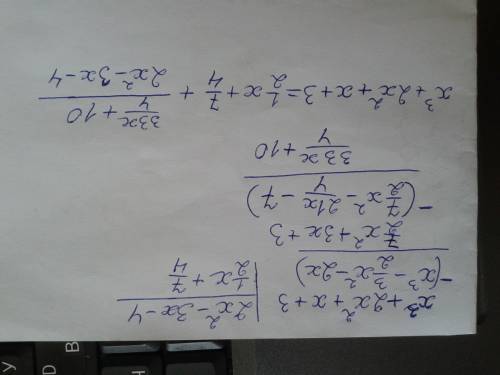 x³ + 2x² + x + 3 | 2x² - 3x - 4
-(x³ - 3/2 x² - 2x) | 1/2 x + 7/4
7/2 x² + 3x + 3
-(7/2 x² - 21x/4 - 7)
33x/4 + 10
x³ + 2x² + x + 3 = 1/2 x + 7/4 + (33x/4 + 10)/(2x² - 3x - 4)
У
D
В